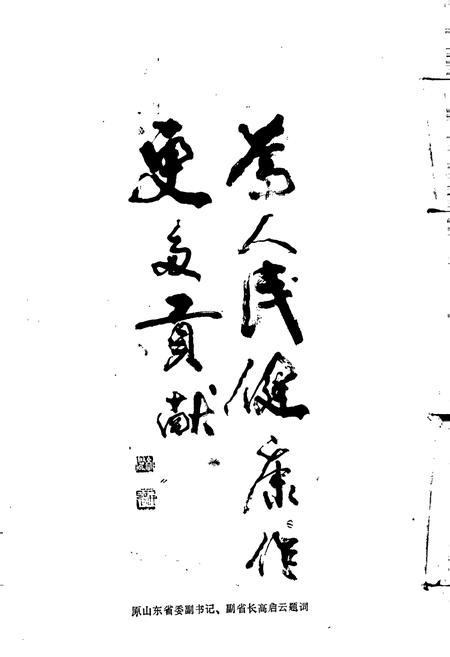 為人民健康作
更多贡献
原山东省委副书记、副省长高启云题词